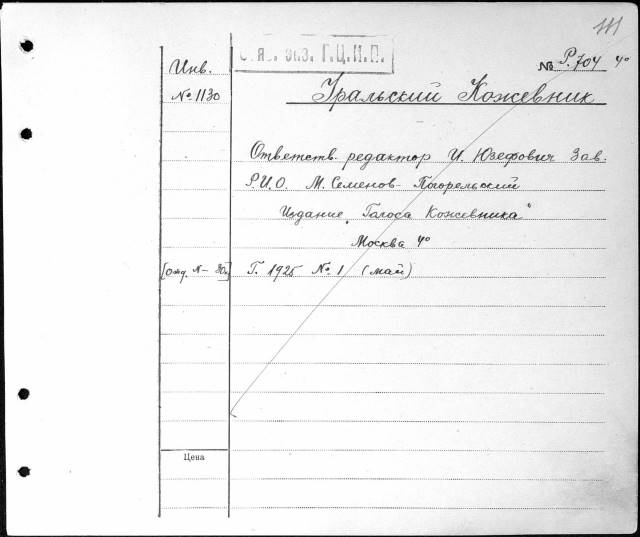 111
Обяз. экз. Г.Ц.К.П.
Инв. № 1130
№ Р.704 4°
Уральский Кожевник
Ответств. редактор И. Юзефович Зав.
Р.И.О. М. Семенов-Погорельский
Издание „Голоса Кожевника"
Москва 4°
[отд. №-80к] Г. 1925 № 1 (май)
Цена